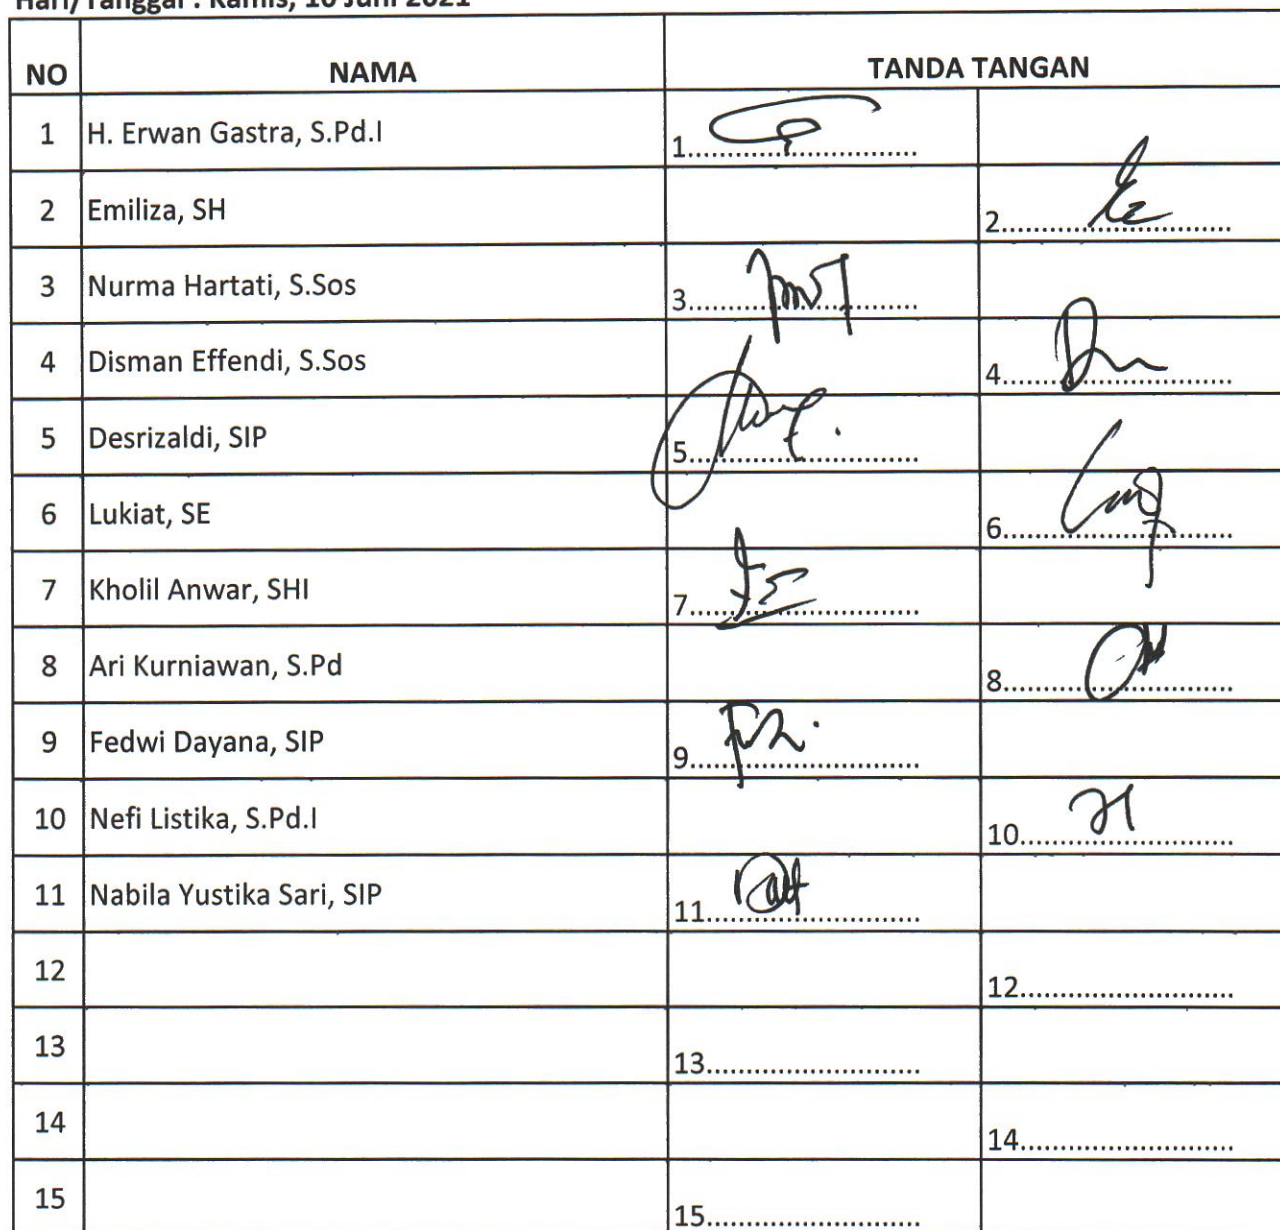 Hari/Tanggal : Kamis, 10 Juni 2021
NO NAMA TANDA TANGAN
1 H. Erwan Gastra, S.Pd.I 1
2 Emiliza, SH 2
3 Nurma Hartati, S.Sos 3
4 Disman Effendi, S.Sos 4
5 Desrizaldi, SIP 5
6 Lukiat, SE 6
7 Kholil Anwar, SHI 7
8 Ari Kurniawan, S.Pd 8
9 Fedwi Dayana, SIP 9
10 Nefi Listika, S.Pd.I 10
11 Nabila Yustika Sari, SIP 11
12 12
13 13
14 14
15 15